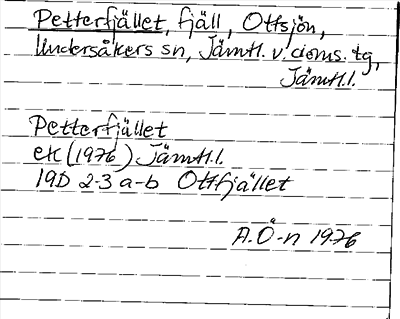 Petterfjället, fjäll, Ottsjön,
Undersåkers sn, Jämtl. v. doms. tg,
Jämtl.l.
Petterfjället
ek (1976) Jämtl.l.
19D 2-3 a-b Ottfjället
A. Ö-n 1976